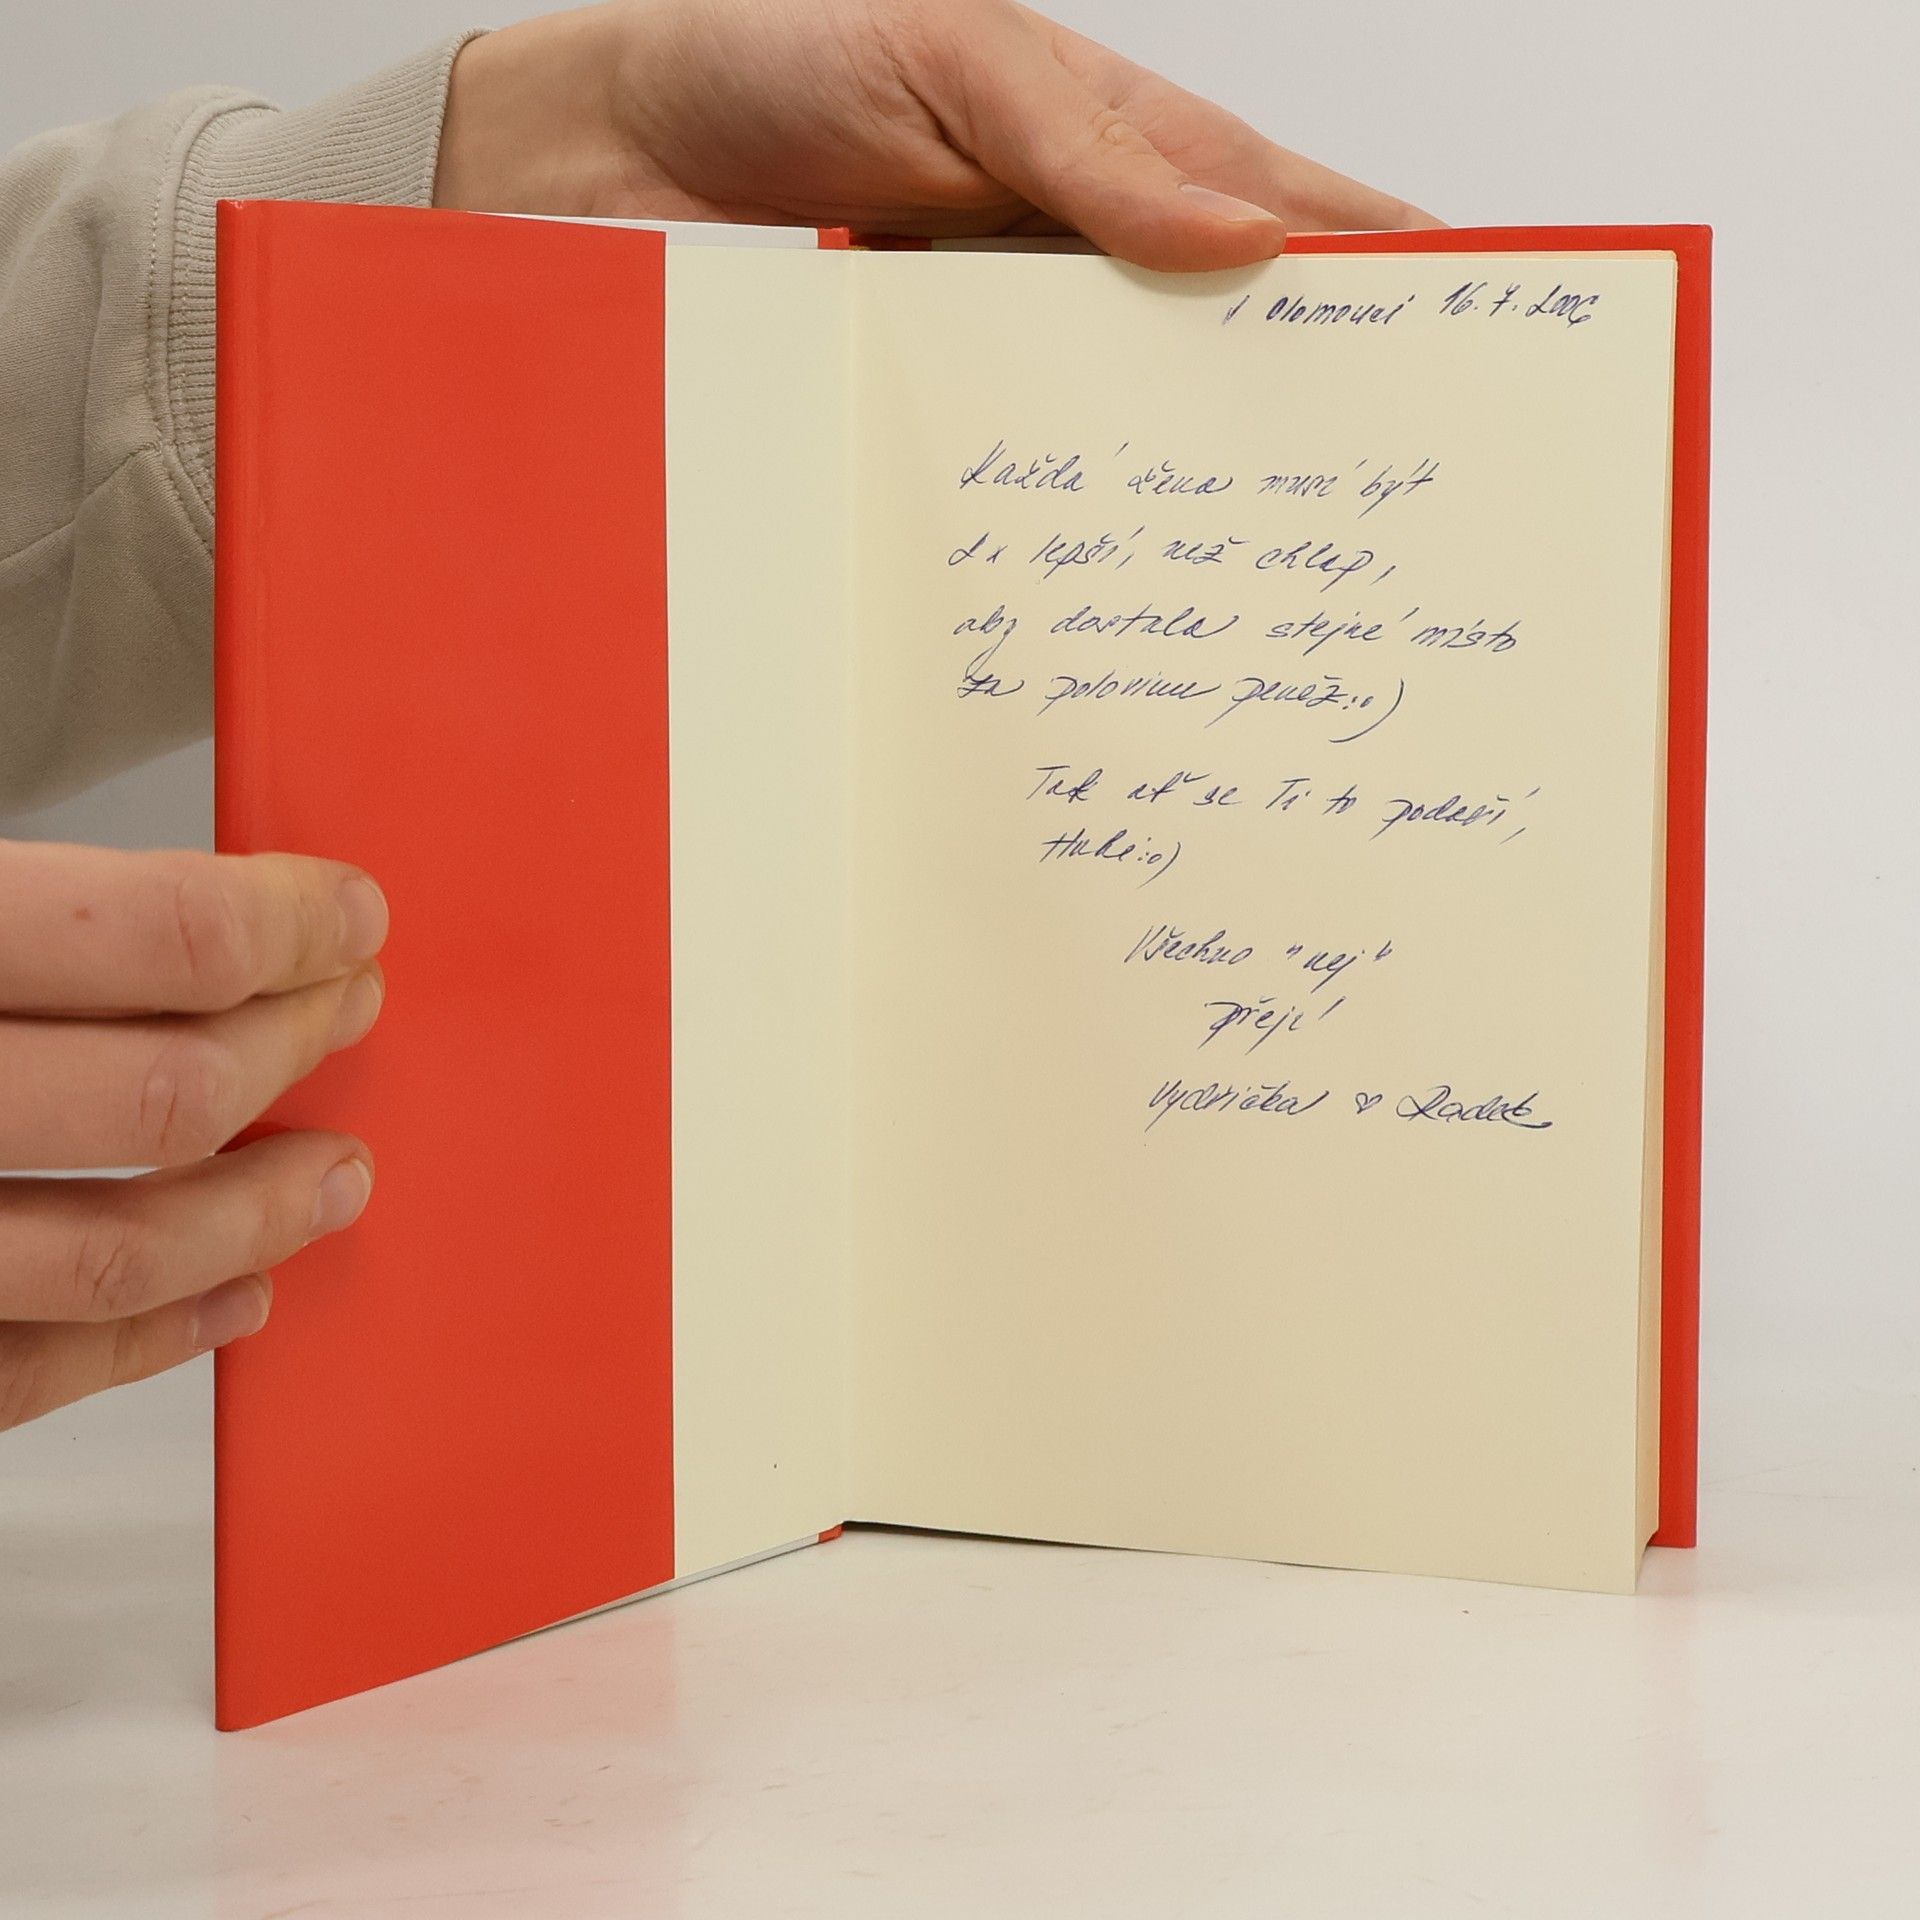 V Olomouci 16. 7. 2006
Každá žena musí být
2x lepší, než chlap,
aby dostala stejné místo
za polovinu peněz:o)
Tak ať se Ti to podaří,
:o)
Všechno "nej"
přejí
Vydřička ♡ Radek